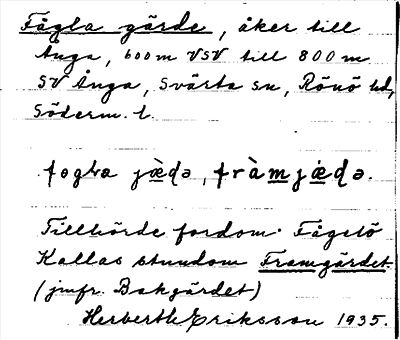 Fågla gärde, åker till
Ånga, 600 m VSV till 800 m
SV Ånga, Svärta sn, Rönö hd,
Söderm. l.
fogla jæ̀də, fràmjæ̀də.
Tillhörde fordom Fågelö
Kallas stundom Framgärdet.
(jmfr. Bakgärdet)
Herbert Eriksson 1935.